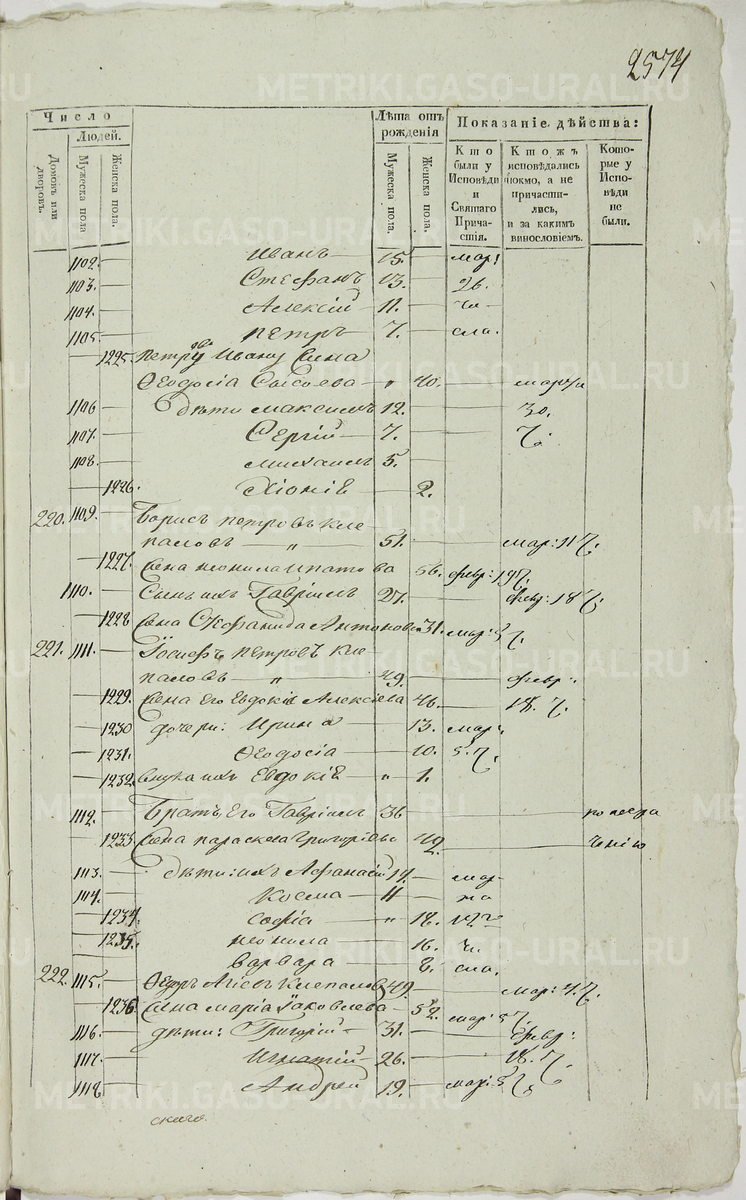 2574
METRIKI.GASO-URAL.RU
Число
Людей.
Домовъ или дворовъ.
Мужеска пола.
Женска пола.
Лѣта отъ рожденія
Мужеска пола.
Женска пола.
Показаніе дѣйства:
Кто были у Исповѣди и Святаго Причастія.
Ктожъ исповѣдались токмо, а не причастились, и за какимъ винословіемъ.
Которые у Исповѣди не были.
1102. Иванъ 15. мар:
1103. Стефанъ 13. 26.
1104. Алексій 11. чи
1105. Петръ 7. сла.
1225. Петръ Иванъ жена
Ѳеодосіа Сысоева " 40. мар
1106 дѣти Максимъ 12. 30.
1107. Сергій 7. ч.
1108. Михаилъ 5.
1226. Хіоніѣ 2.
220. 1109. Борисъ Петровъ Кле
паловъ " 51. мар: 11 ч.
1227. жена Неонила Ипатова 56. февр: 19 ч.
1110. Сынъ ихъ Гавріилъ 27. февр: 18 ч.
1228 жена Стефанида Антонова 31. мар: 5 ч.
221. 1111. Іосифъ Петровъ Кле
паловъ " 49. февр:
1229. жена Его Евдокіѣ Алексіева 46. 18. ч.
1230 дочери: Ирина 13. мар:
1231. Ѳеодосіа 10. 5. ч.
1232. внука ихъ Евдокіѣ " 1.
1112. Братъ Его Гавріилъ 36 по нера
1233. жена Параскева Григоріева 42. ченію
1113. дѣти: ихъ Афанасій 14. мар
1114. Косма 11 та
1234. Софіа " 18.
1235. Неонила 16. чи.
Варвара 8. сла.
222. 1115. Ѳедоръ Клепаловъ 49. мар: 4. ч.
1236. жена Маріа Іаковлева 52. мар: 5 ч.
1116. дѣти: Григорій 31. февр:
1117. Игнатій 26. 18. ч.
1118 Андрей 19. мар: 5 ч.
скаго.